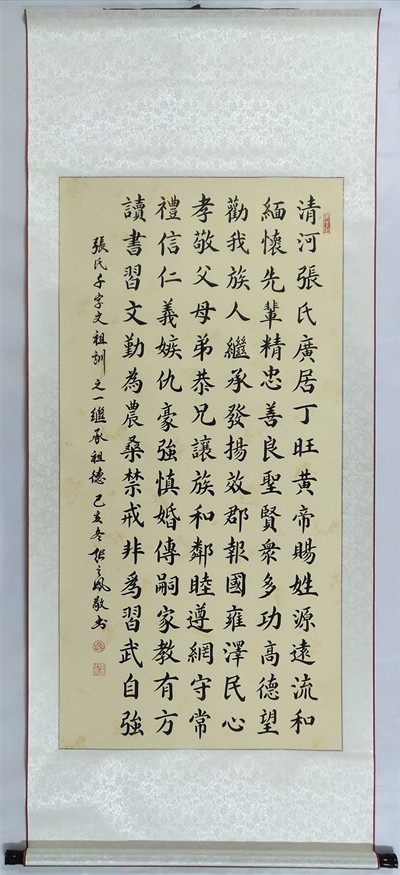 清河張氏廣居丁旺黃帝賜姓源遠流和
緬懷先輩精忠善良聖賢衆多功高德望
勸我族人繼承發揚效郡報國雍澤民心
孝敬父母弟恭兄讓族和鄰睦遵網守常
禮信仁義嫉仇豪強慎婚傳嗣家教有方
讀書習文勤為農桑禁戒非為習武自強
張氏千字文祖訓之一繼承祖德 己亥冬 敬书